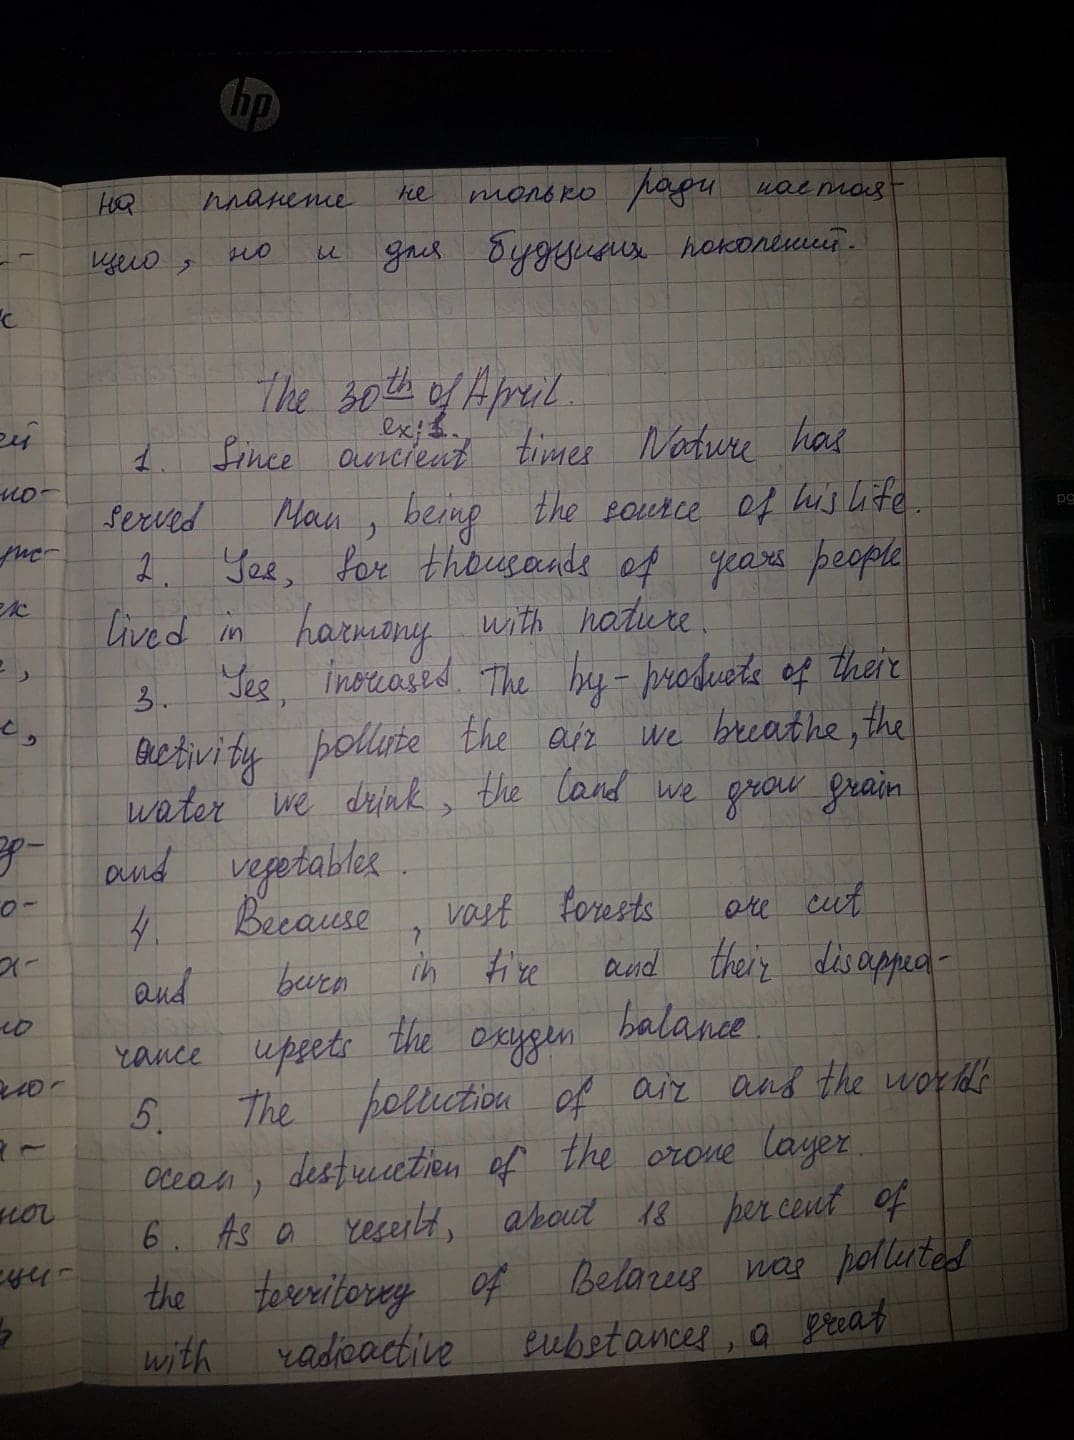 hp
на планете не только ради настоя-
щего, но и для будущих поколений.
The 30th of April.
ex: 1.
1. Since ancient times Nature has
served Man, being the source of his life.
2. Yes, for thousands of years people
lived in harmony with nature.
3. Yes, increased. The by-products of their
activity pollute the air we breathe, the
water we drink, the land we grow grain
and vegetables.
4. Because, vast forests are cut
and burn in fire and their disappea-
rance upsets the oxygen balance.
5. The pollution of air and the world's
ocean, destruction of the ozone layer.
6. As a result, about 18 percent of
the territory of Belarus was polluted
with radioactive substances, a great